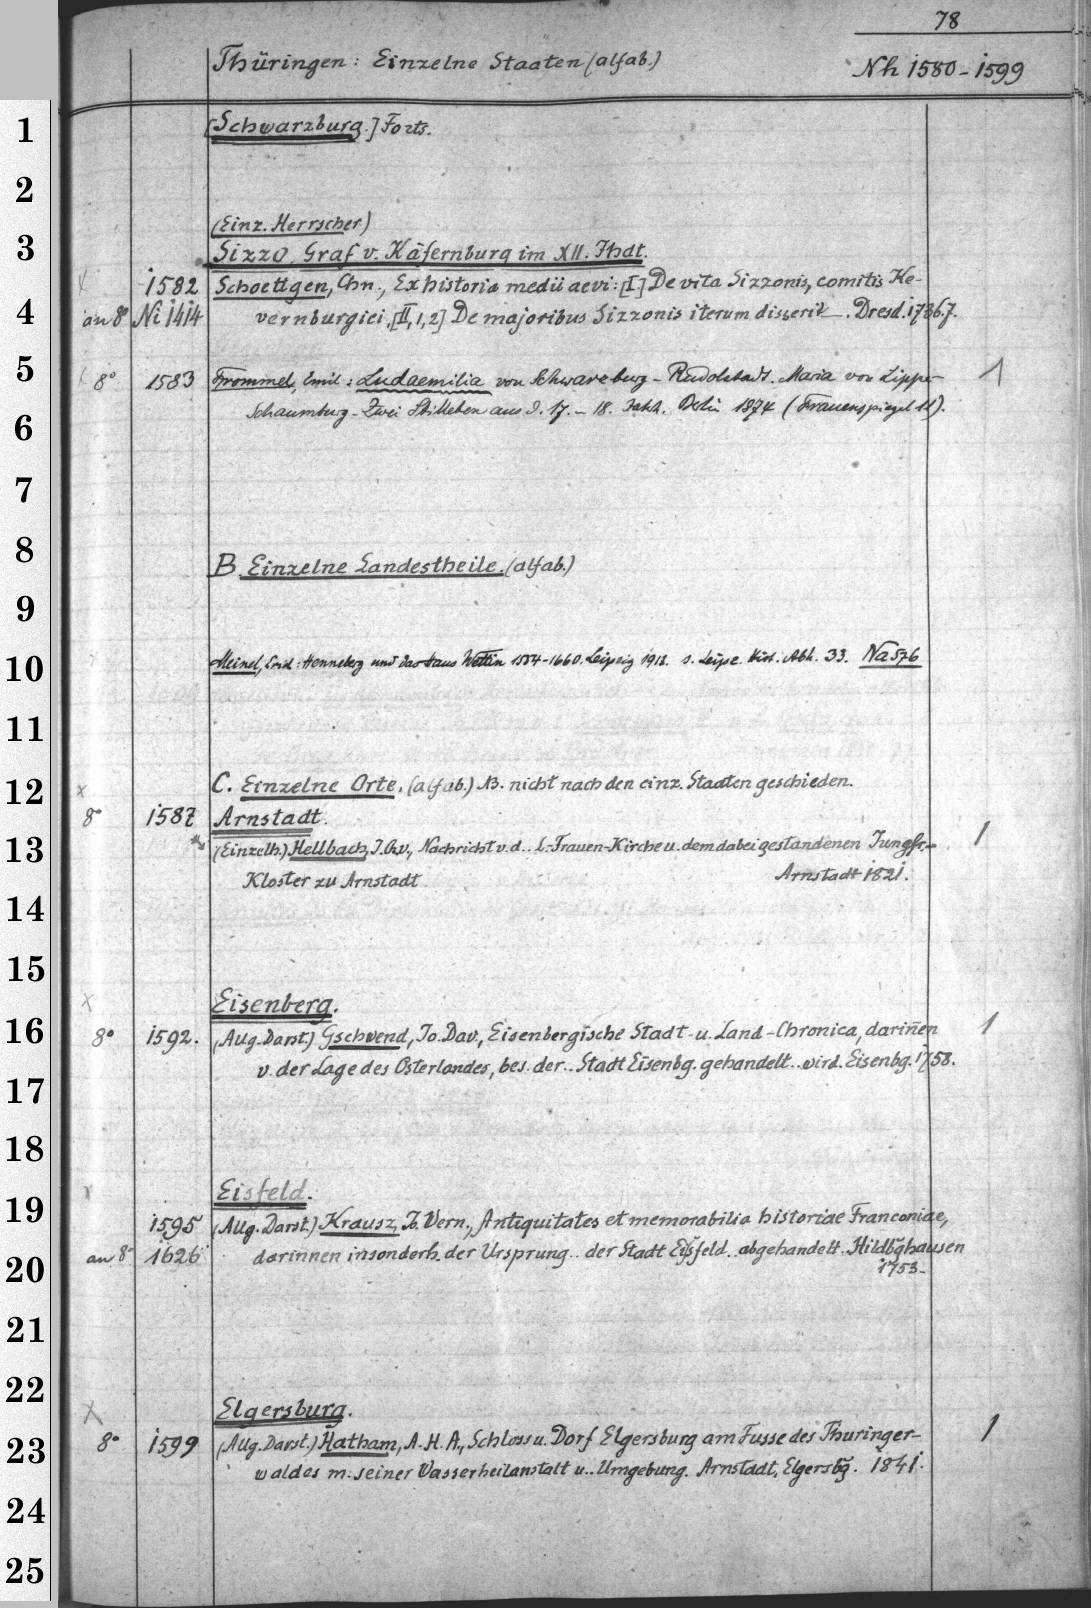 78
Thüringen: Einzelne Staaten (alfab.) Nh 1580-1599
1 [Schwarzburg.] Forts.
2
(Einz. Herrscher)
3 Sizzo, Graf v. Käfernburg im XII. Jhdt.
1582 Schoettgen, Chn., Ex historia medii aevi: [I] De vita Sizzonis, comitis Ke-
4 an 8° Ni 1414 vernburgici. [II,1,2] De majoribus Sizzonis iterum disserit —. Dresd. 1736.7.
5 8° 1583 Frommel, Emil: Ludaemilia von Schwarzburg-Rudolstadt. Maria von Lippe- 1
6 Schaumburg. Zwei Stilleben aus d. 17. – 18. Jahrh. Berlin 1874 (Frauenspiegel 11).
7
8 B. Einzelne Landestheile. (alfab.)
9
10 Meinel, Frid: Henneberg und das Haus Wettin 1554-1660. Leipzig 1913. s. Leipz. hist. Abh. 33. Na 576
11
12 x C. Einzelne Orte. (alfab.) NB. nicht nach den einz. Staaten geschieden.
8° 1587 Arnstadt.
13 (Einzelh.) Hellbach, J. Ch. v., Nachricht v. d.. L.-Frauen-Kirche u. dem dabei gestandenen Jungfr.- 1
Kloster zu Arnstadt. Arnstadt 1821.
14
15
x Eisenberg.
16 8° 1592. (Allg. Darst.) Gschwend, Jo. Dav., Eisenbergische Stadt- u. Land-Chronica, darin̄en 1
v. der Lage des Osterlandes, bes. der.. Stadt Eisenbg. gehandelt.. wird. Eisenbg. 1758.
17
18
x Eisfeld.
19 1595 (Allg. Darst.) Krausz, Jo. Wern., Antiquitates et memorabilia historiae Franconiae,
20 an 8° 1626 darinnen insonderh. der Ursprung.. der Stadt Eißfeld.. abgehandelt. Hildbghausen
1753.
21
22
x Elgersburg.
23 8° 1599 (Allg. Darst.) Hatham, A. H. A., Schloss u. Dorf Elgersburg am Fusse des Thüringer- 1
waldes m. seiner Wasserheilanstalt u.. Umgebung. Arnstadt, Elgersbg. 1841.
24
25